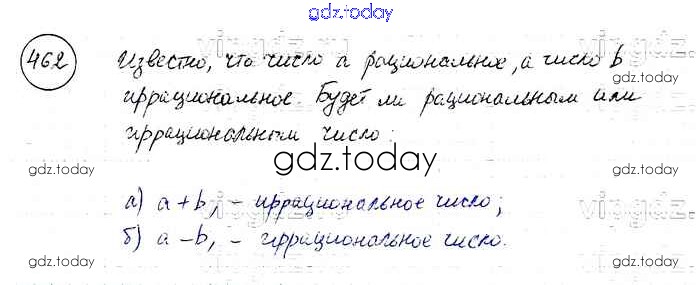 gdz.today
462 Известно, что число a рациональное, а число b
иррациональное. Будет ли рациональным или
иррациональным число:
gdz.today
gdz.today
gdz.today
а) a+b, - иррациональное число;
б) a-b, - иррациональное число.
gdz.today
gdz.today